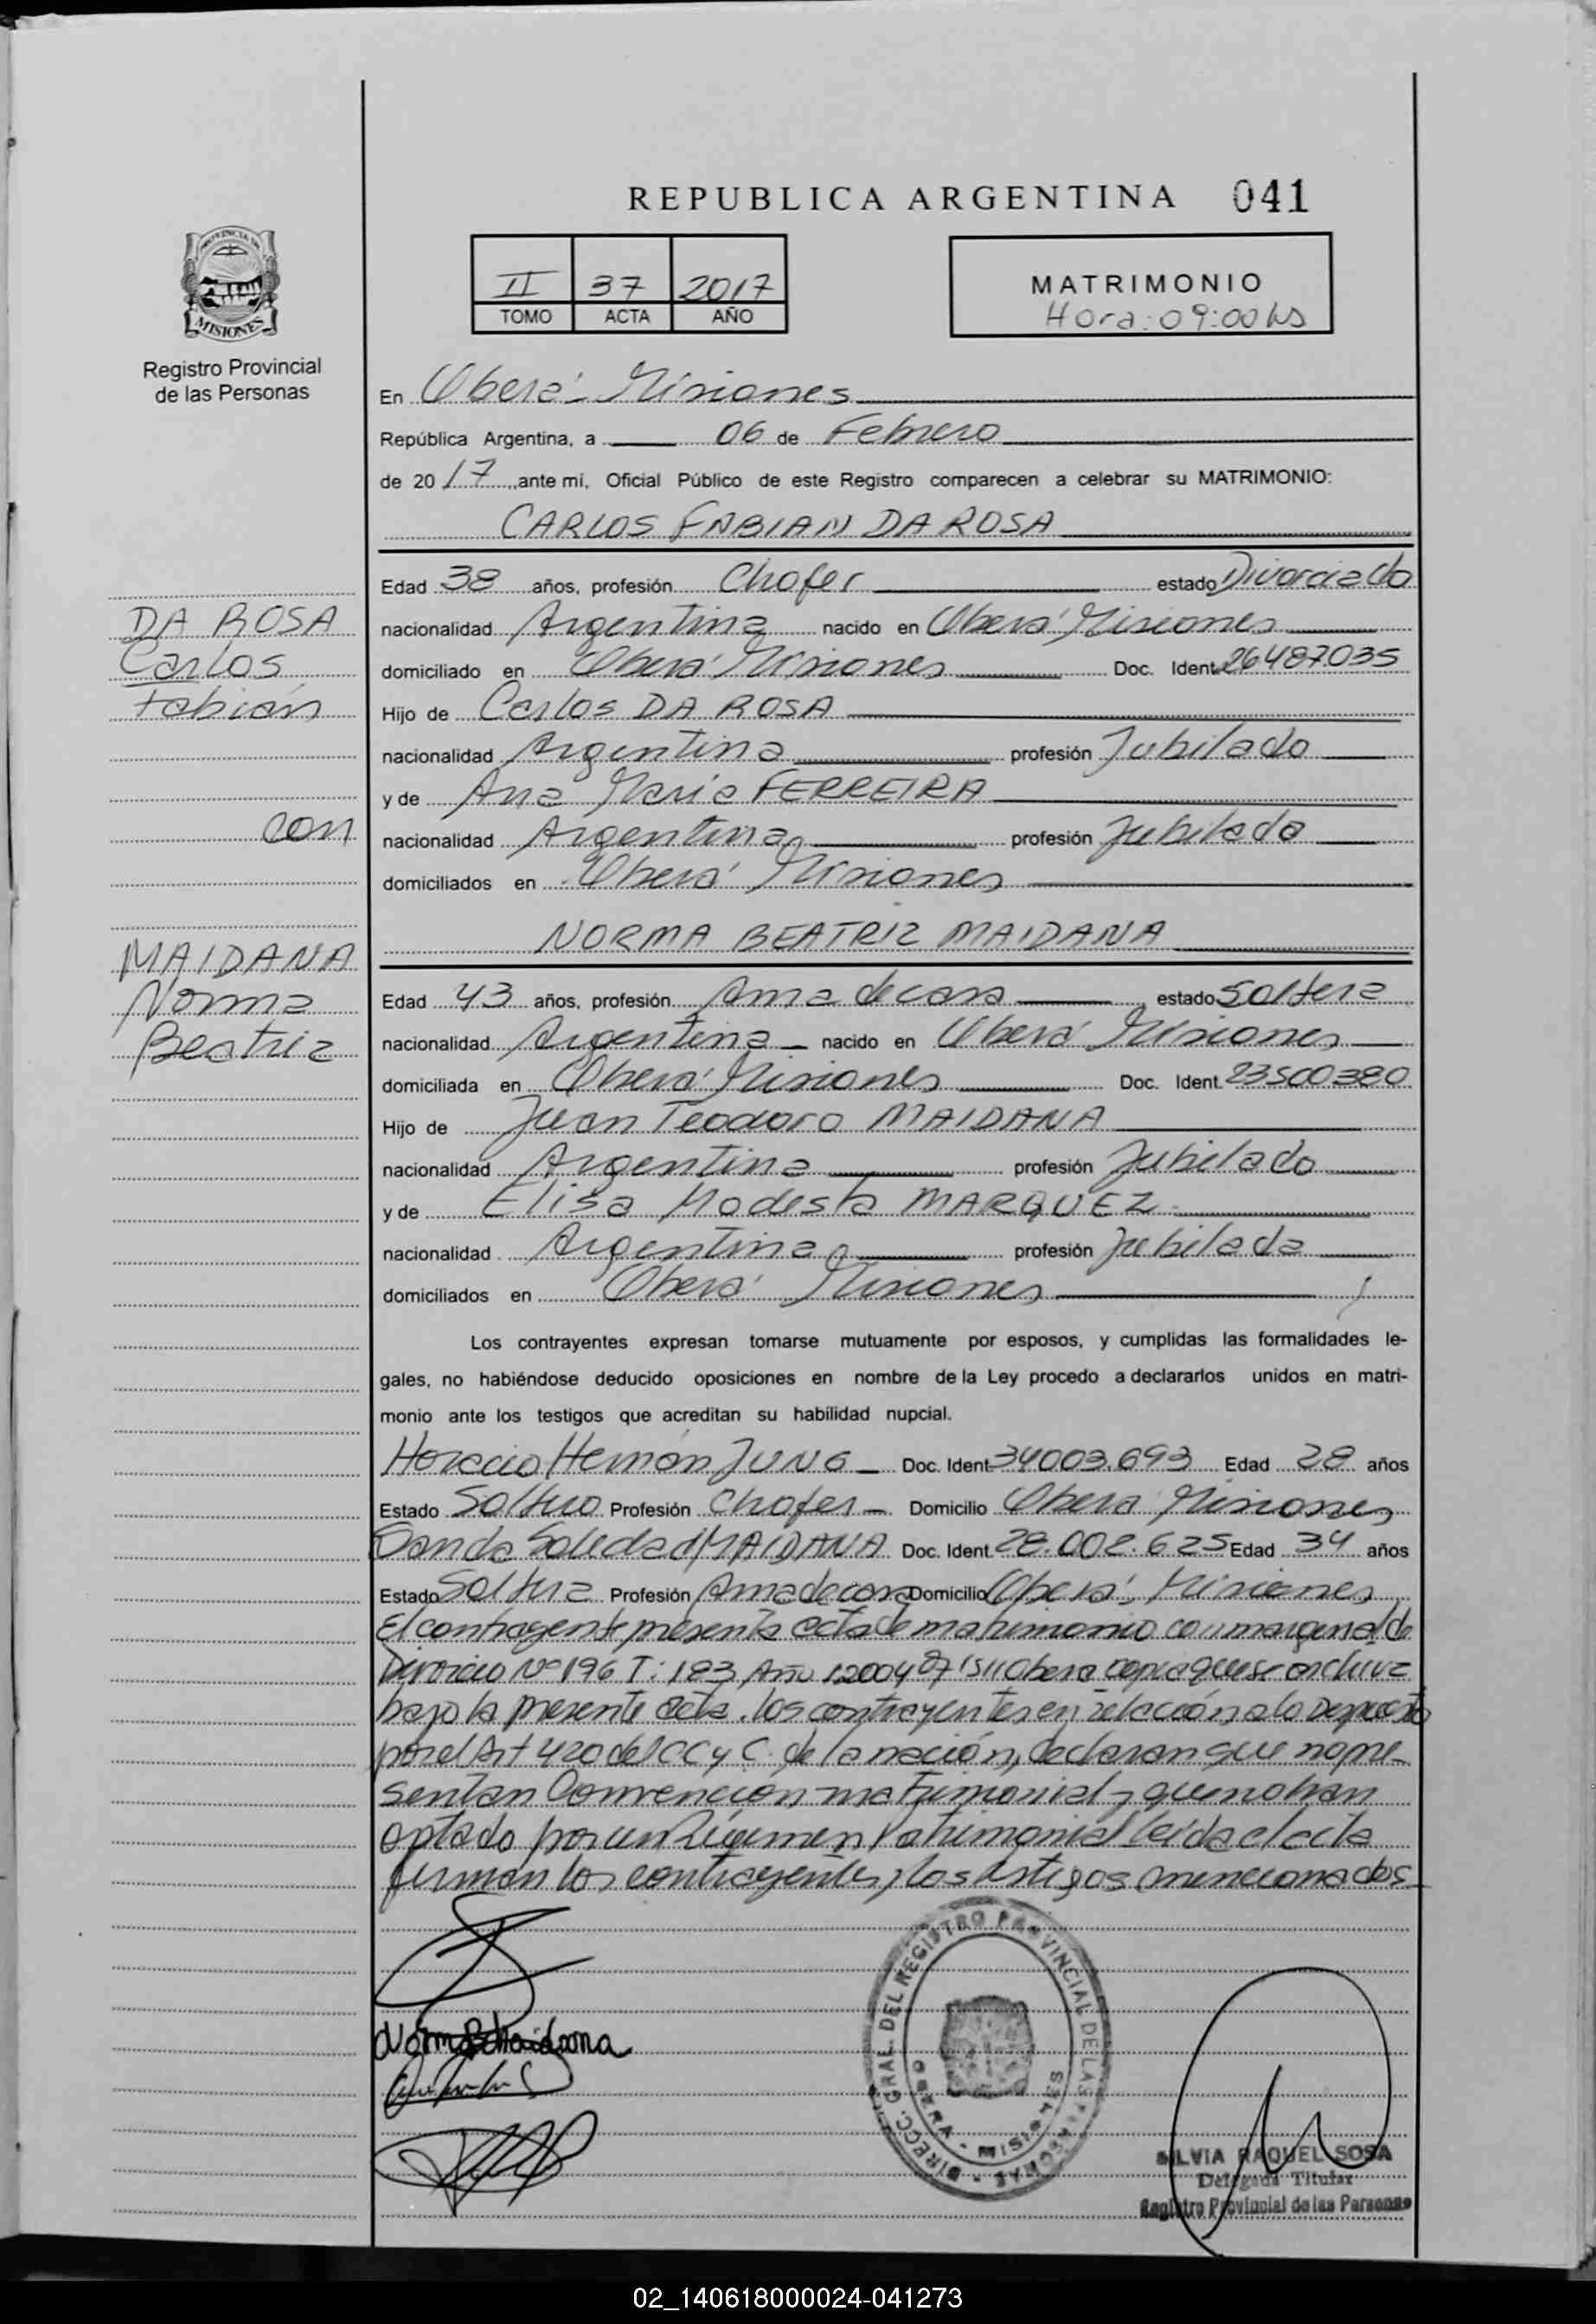 REPUBLICA ARGENTINA 041
PROVINCIA DE
MISIONES
Registro Provincial
de las Personas
II 37 2017
TOMO ACTA AÑO
MATRIMONIO
Hora: 09:00 hs
En Oberá - Misiones
República Argentina, a 06 de Febrero
de 2017, ante mi, Oficial Público de este Registro comparecen a celebrar su MATRIMONIO:
CARLOS FABIAN DA ROSA
Edad 38 años, profesión Chofer estado Divorciado
DA ROSA
nacionalidad Argentina nacido en Oberá Misiones
Carlos
domiciliado en Oberá Misiones Doc. Ident. 26487035
Fabián
Hijo de Carlos DA ROSA
nacionalidad Argentina profesión Jubilado
y de Ana Maria FERREIRA
con
nacionalidad Argentina profesión Jubilada
domiciliados en Oberá Misiones
NORMA BEATRIZ MAIDANA
MAIDANA
Edad 43 años, profesión Ama de casa estado Soltera
Norma
nacionalidad Argentina nacido en Oberá Misiones
Beatriz
domiciliada en Oberá Misiones Doc. Ident. 23500380
Hijo de Juan Teodoro MAIDANA
nacionalidad Argentina profesión Jubilado
y de Elisa Modesta MARQUEZ
nacionalidad Argentina profesión Jubilada
domiciliados en Oberá Misiones
Los contrayentes expresan tomarse mutuamente por esposos, y cumplidas las formalidades le-
gales, no habiéndose deducido oposiciones en nombre de la Ley procedo a declararlos unidos en matri-
monio ante los testigos que acreditan su habilidad nupcial.
Horacio Hernán JUNG Doc. Ident. 34003.693 Edad 28 años
Estado Soltero Profesión Chofer Domicilio Oberá Misiones
Soledad MAIDANA Doc. Ident. 28.002.625 Edad 34 años
Estado Soltera Profesión Ama de casa Domicilio Oberá, Misiones
El contrayente presenta acta de matrimonio con marginal de
Divorcio Nº 196 T: 183 Año Oberá copia que se archiva
bajo la presente acta. los contrayentes en relación a lo Dispuesto
por el Art 420 del CC y C. de la nación, declaran que no pre-
sentan Convención matrimonial y que no han
optado por un Régimen Patrimonial leída el acta
firman los contrayentes y los testigos mencionados
Norma B Maidana
DIRECC. GRAL. DEL REGISTRO PROVINCIAL DE LAS PERSONAS
OBERA - MISIONES
SILVIA RAQUEL SOSA
Delegada Titular
Registro Provincial de las Personas
02_140618000024-041273